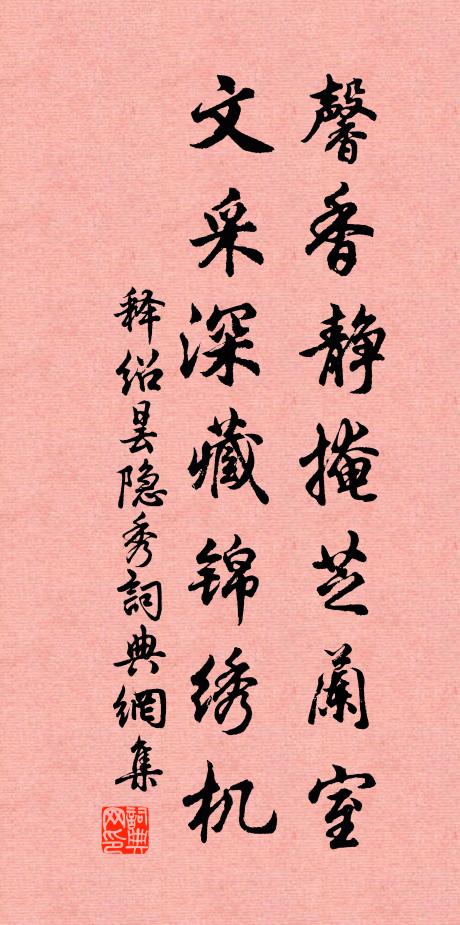 馨香静掩芝蘭室
文采深藏锦绣机
释绍昙隐秀詞典網集
詞典网印